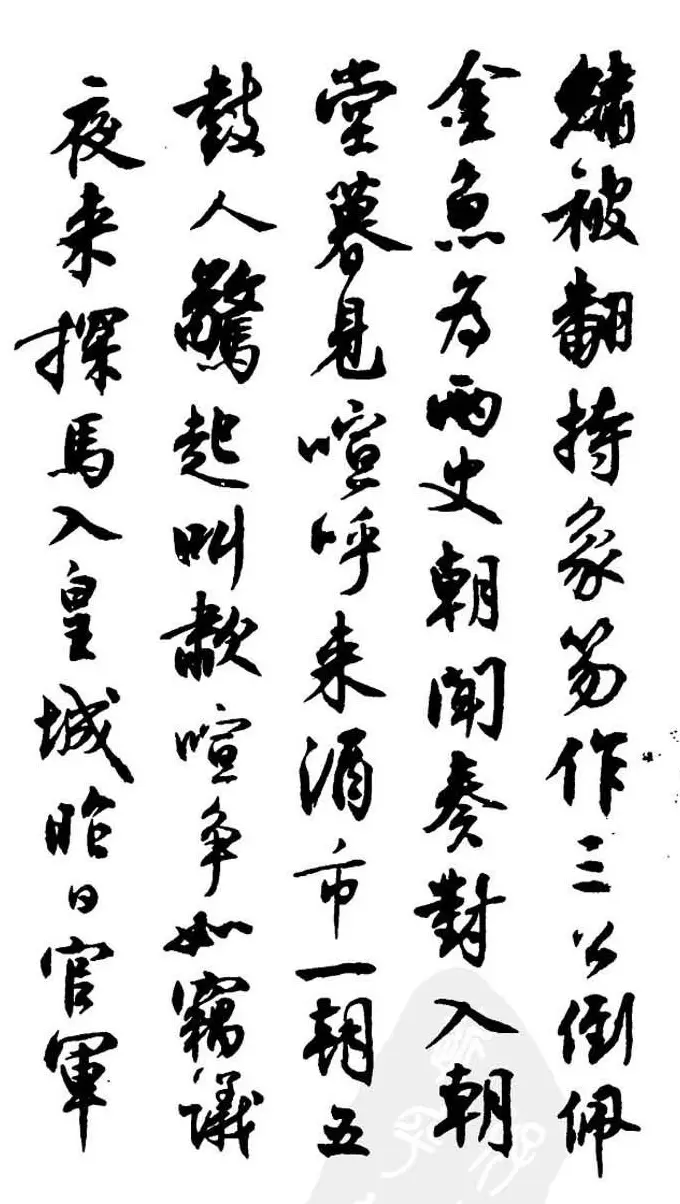 繡被翻持象笏作三公倒佩
金魚為兩史朝聞奏對入朝
堂暮見喧呼来酒市一朝五
鼓人驚起叫歗喧争如竊議
夜来探馬入皇城昨日官軍